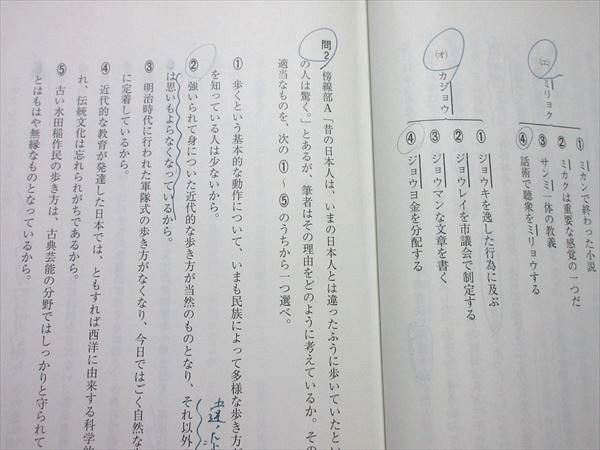 (エ) ミリョク
① ミカンで終わった小説
② ミカクは重要な感覚の一つだ
③ サンミ一体の教義
④ 話術で聴衆をミリョウする
(オ) カジョウ
① ジョウキを逸した行為に及ぶ
② ジョウレイを市議会で制定する
③ ジョウマンな文章を書く
④ ジョウヨ金を分配する
問2 傍線部A「昔の日本人は、いまの日本人とは違ったふうに歩いていたとい
の人は驚く。」とあるが、筆者はその理由をどのように考えているか。その
適当なものを、次の①～⑤のうちから一つ選べ。
① 歩くという基本的な動作について、いまも民族によって多様な歩き方が
を知っている人は少ないから。
② 強いられて身についた近代的な歩き方が当然のものとなり、それ以外
は思いもよらなくなっているから。
③ 明治時代に行われた軍隊式の歩き方がなくなり、今日ではごく自然な
に定着しているから。
④ 近代的な教育が発達した日本では、ともすれば西洋に由来する科学的
れ、伝統文化は忘れられがちであるから。
⑤ 古い水田稲作民の歩き方は、古典芸能の分野ではしっかりと守られて
とはもはや無縁なものとなっているから。